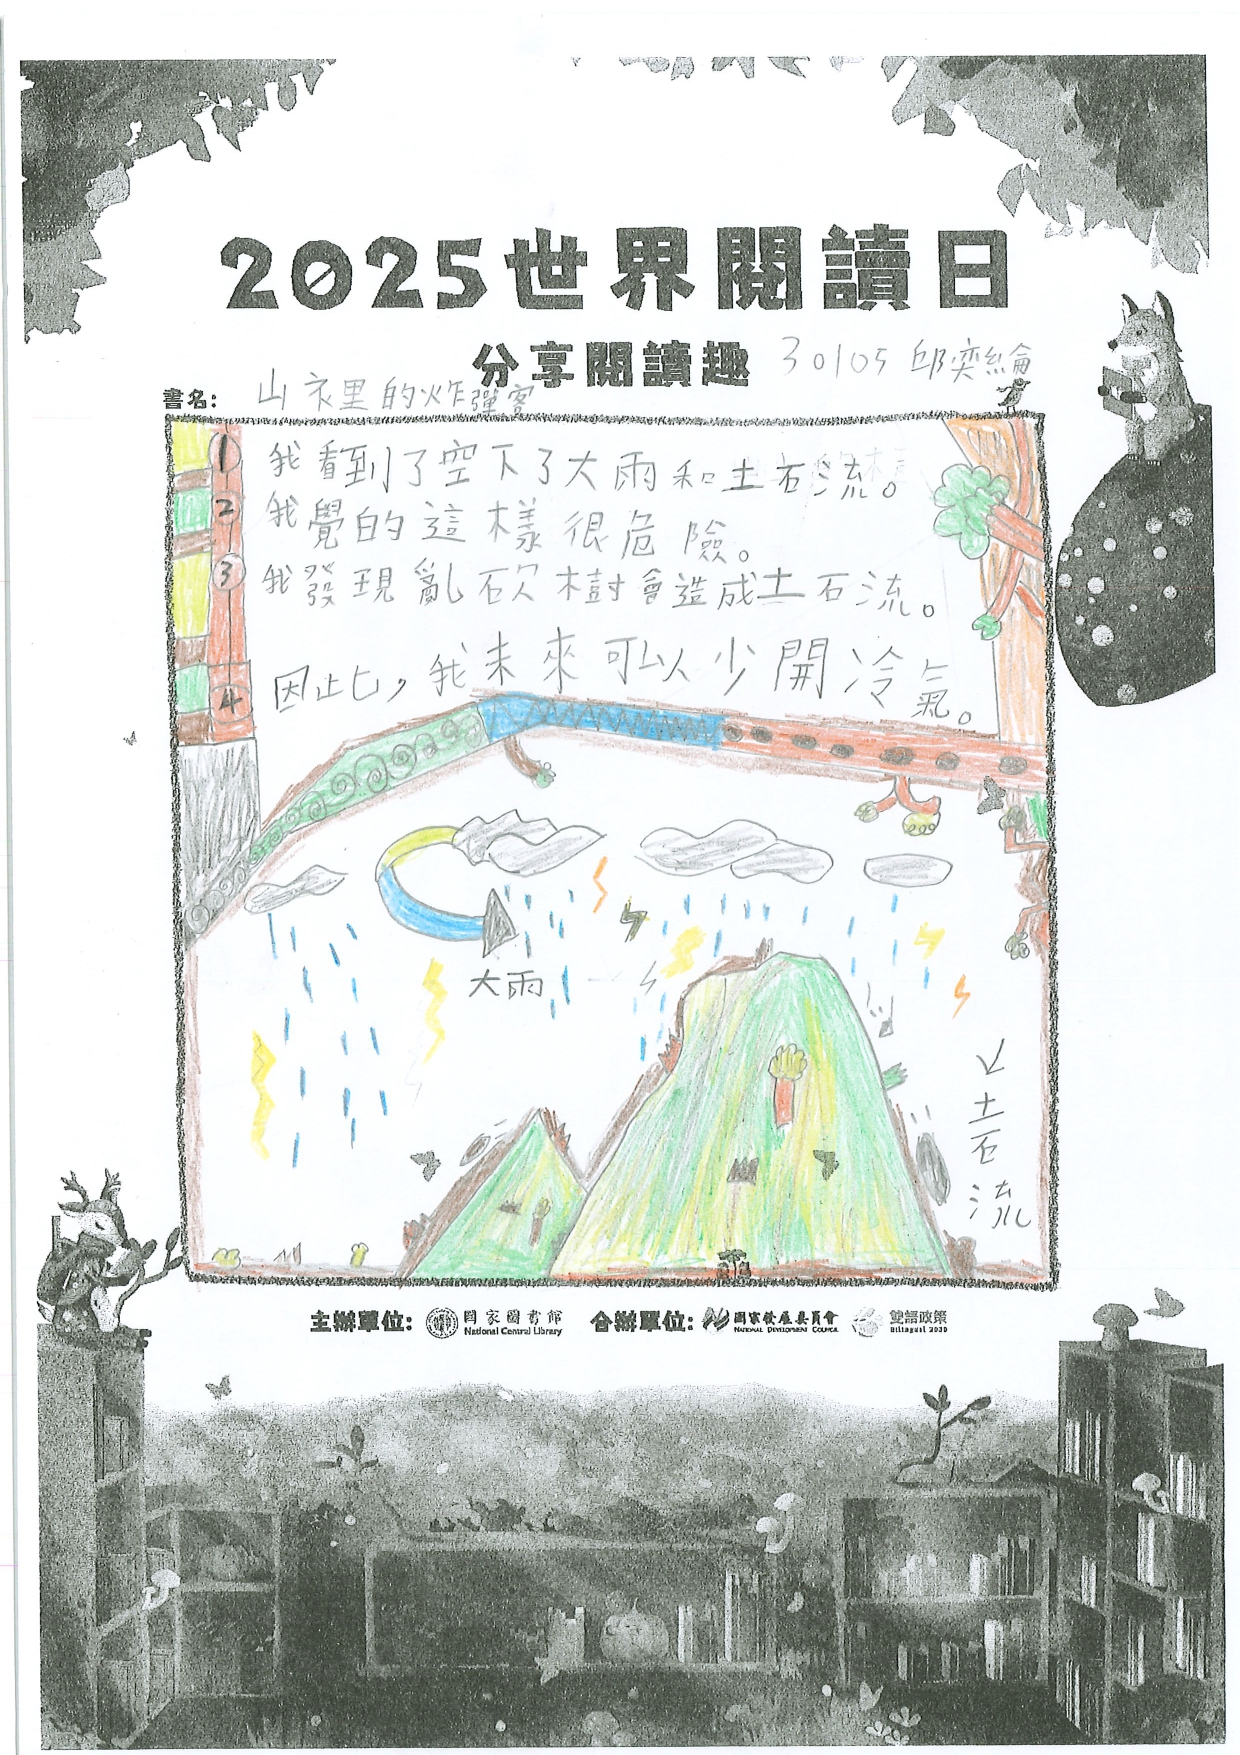 2025世界閱讀日
分享閱讀趣
30105 邱奕綸
書名: 山衣里的炸彈客
1 我看到了空下了大雨和土石流。
2 我覺的這樣很危險。
3 我發現亂砍樹會造成土石流。
4 因此,我未來可以少開冷氣。
大雨
土石流
主辦單位: 國家圖書館 National Central Library 合辦單位: 國家發展委員會 NATIONAL DEVELOPMENT COUNCIL 雙語政策 Bilingual 2030